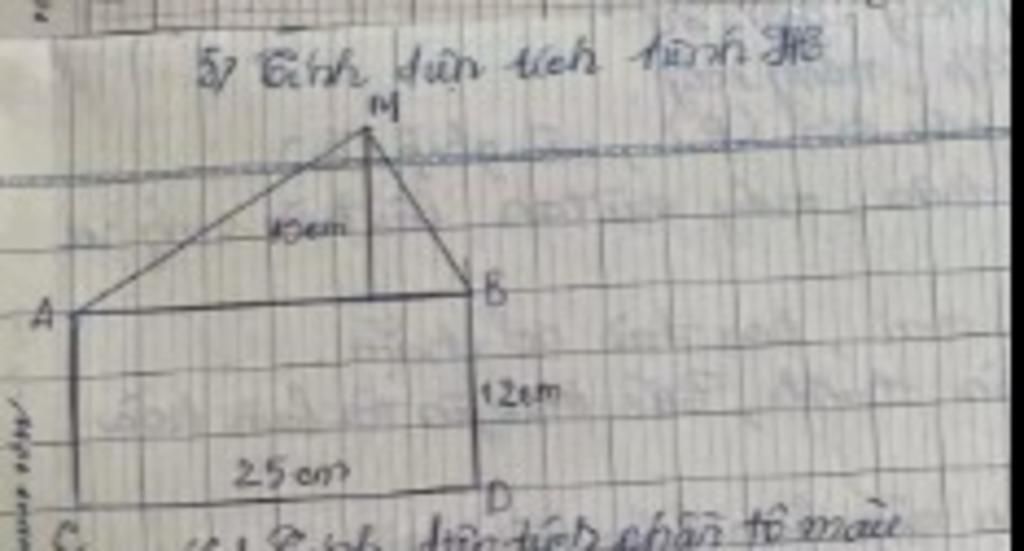 5) Tính diện tích hình
M
10cm
A B
12cm
25cm
C D
Tính diện tích phần tô màu